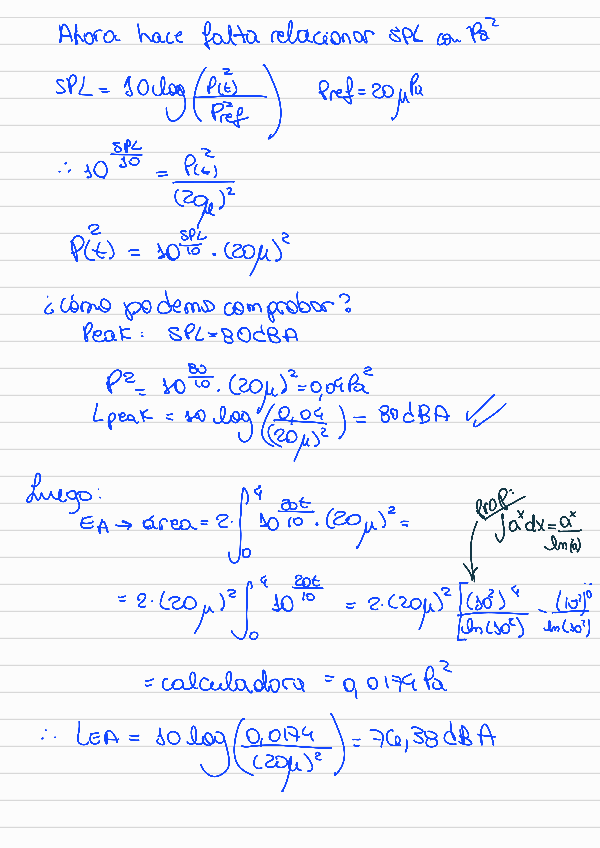 Ahora hace falta relacionar SPL con Pa²
SPL = 10 log (P(t)² / Pref²) Pref = 20 μPa
∴ 10^(SPL/10) = P(t)² / (20μ)²
P(t)² = 10^(SPL/10) · (20μ)²
¿cómo podemo comprobar?
Peak: SPL = 80 dBA
P² = 10^(80/10) · (20μ)² = 0,04 Pa²
Lpeak = 10 log (0,04 / (20μ)²) = 80 dBA ✓
Luego:
EA → área = 2 · ∫₀⁴ 10^(20t/10) · (20μ)² =
Prop:
∫aˣdx = aˣ / ln(a)
= 2 · (20μ)² ∫₀⁴ 10^(20t/10) = 2 · (20μ)² [(10²)⁴ / ln(10²) - (10²)⁰ / ln(10²)
= calculadora = 0,0174 Pa²
∴ LEA = 10 log (0,0174 / (20μ)²) = 76,38 dBA